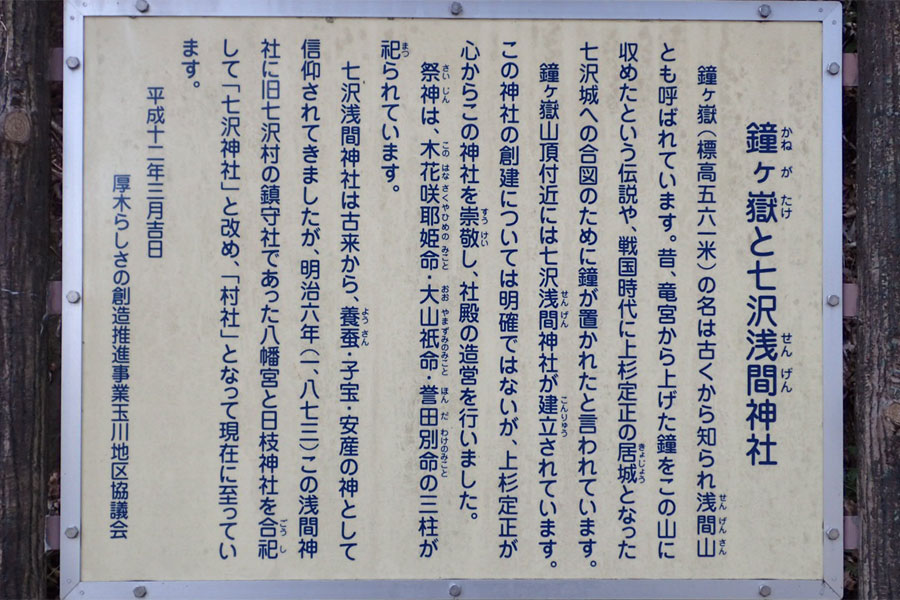 鐘ヶ嶽と七沢浅間神社
鐘ヶ嶽（標高五六一米）の名は古くから知られ浅間山
とも呼ばれています。昔、竜宮から上げた鐘をこの山に
収めたという伝説や、戦国時代に上杉定正の居城となった
七沢城への合図のために鐘が置かれたと言われています。
鐘ヶ嶽山頂付近には七沢浅間神社が建立されています。
この神社の創建については明確ではないが、上杉定正が
心からこの神社を崇敬し、社殿の造営を行いました。
祭神は、木花咲耶姫命・大山祇命・誉田別命の三柱が
祀られています。
七沢浅間神社は古来から、養蚕・子宝・安産の神として
信仰されてきましたが、明治六年（一、八七三）この浅間神
社に旧七沢村の鎮守社であった八幡宮と日枝神社を合祀
して「七沢神社」と改め、「村社」となって現在に至ってい
ます。
平成十二年三月吉日
厚木らしさの創造推進事業玉川地区協議会